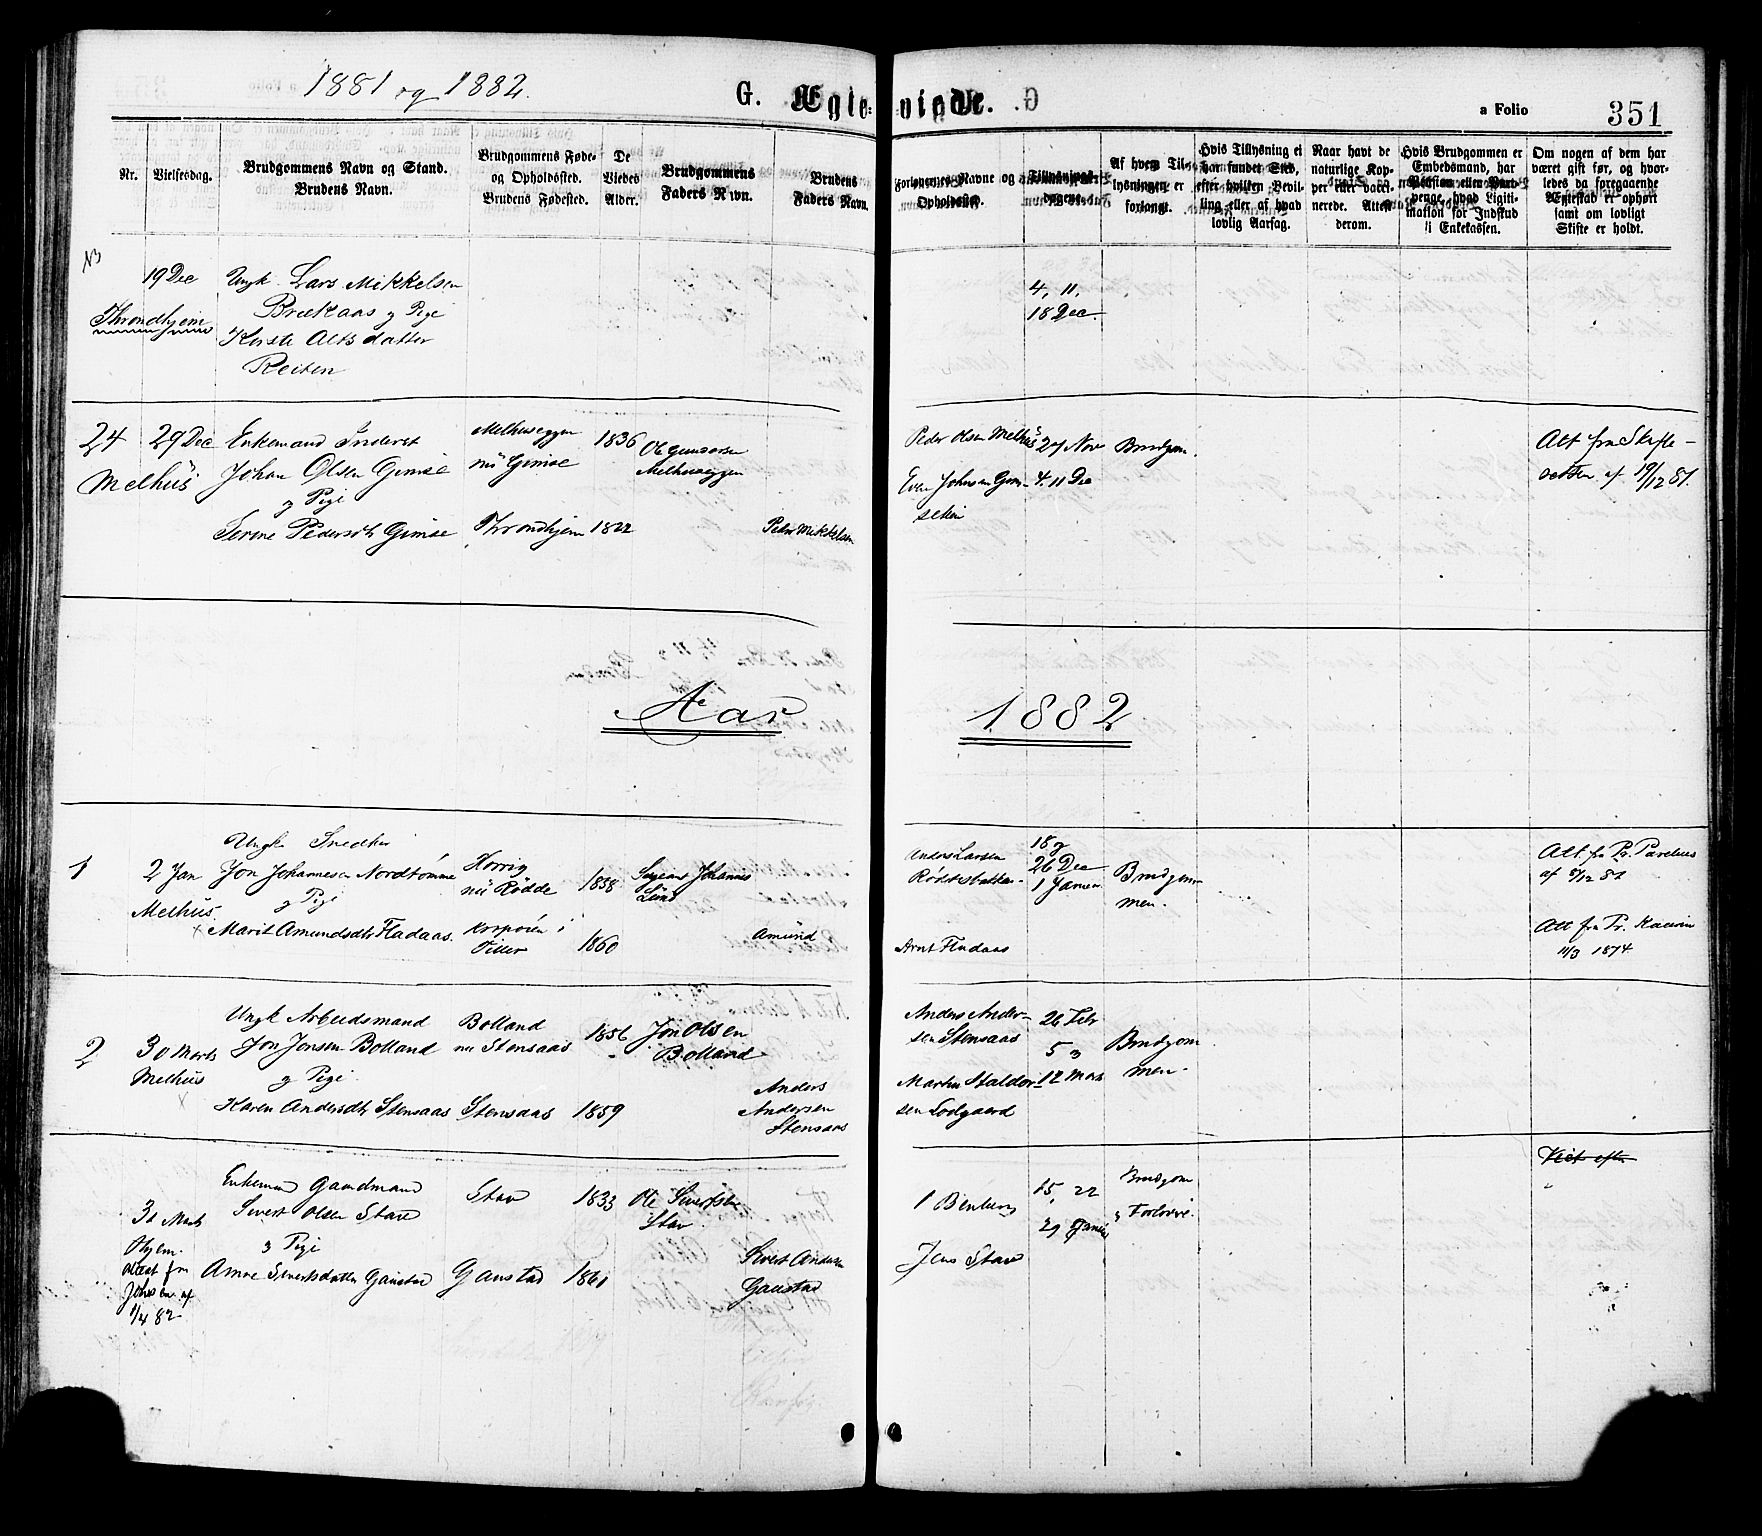 1881 og 1882.
G. Ægteviede.
a Folio 351
Nr.
Vielsesdag.
Brudgommens Navn og Stand.
Brudens Navn.
Brudgommens Føde-
og Opholdssted.
Brudens Fødested.
De
Viedes
Alder.
Brudgommens
Faders Navn.
Brudens
Faders Navn.
Forlovernes Navne og
Opholdssted.
Tillysnings-
dagene.
Af hvem Til-
lysningen er
forlangt.
Hvis Tillysning ei
har fundet Sted,
efter hvilken Bevil-
ling eller af hvad
lovlig Aarsag.
Naar havt de
naturlige Kop-
per eller vacci-
nerede. Attest
derom.
Hvis Brudgommen er
Embedsmand, har
Pension eller Vart-
penge, hvad Ligiti-
mation for Indskud
i Enkekassen.
Om nogen af dem har
været gift før, og hvor-
ledes da foregaaende
Ægteskab er ophørt
samt om lovligt
Skifte er holdt.
N3
19 Dec
Throndhjem
Ungk. Lars Mikkelsen
Brækaas og Pige
Kirste Altsdatter
Reiten
4, 11,
18 Dec.
24 29 Dec
Melhus
Enkemand Inderst
Johan Olsen Gimse
og Pige
Serine Pedersdtr Gimse
Melhuseggen
nu Gimse
Throndhjem
1836
1822
Ole Gundersen
Melhuseggen
Peder Mikkelsen
Peder Olsen Melhus
Even Johnsen Grin-
setin
27 Nov
4. 11 Dec
Brudgom.
Att fra Skifte-
retten af 19/12 81.
Aar 1882
1
2 Jan
Melhus.
Ungk. Snedker
Jon Johannesen Nordtømme
og Pige
Marit Amundsdtr Fladaas.
Horrig
nu Rødde
Korporen i
Tiller
1858
1860
Sergeant Johannes
Lund
Amund
Anders Larsen
Røddesbakken
Arnt Fladaas
18 og
26 Dec
1 Januar
Brudgom
men.
Att fra Pr. Parelius
af 8/12 81
Att fra Pr. Kaurin
11/3 1874
2
30 Marts
Melhus
Ungk Arbeidsmand
Jon Jonsen Bolland
og Pige.
Karen Andersdtr Stensaas
Bolland
nu Stensaas
Stensaas
1856
1859
Jon Olsen
Bolland
Anders
Andersen
Stensaas
Anders Ander-
sen Stensaas
Martin Haldor-
sen Lodgaard
26 Febr
5 og
12 Mars
Brudgom
men.
31 Marts
Hjem.
attest fra
Johsen af
1/4 82
Enkemand Gaardmand
Sivert Olsen Stave
og Pige
Anne Sivertsdatter Gaustad
Stav
Gaustad
1833
1861
Ole Sivertsen
Stav.
Sivert Andersen
Gaustad
I Bentsen
Jens Stave
15, 22
29 Januar
Brudgom
og Forlover.
Viet efter